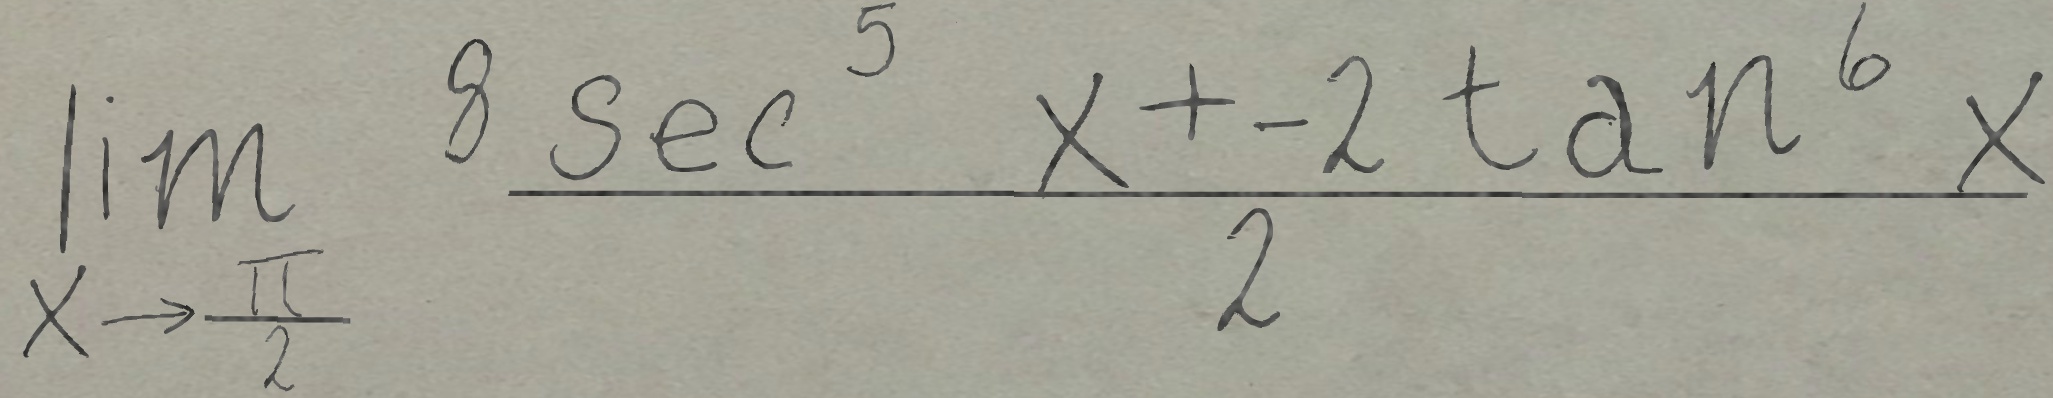 lim x→π/2 (8 sec^5 x + -2 tan^6 x)/2